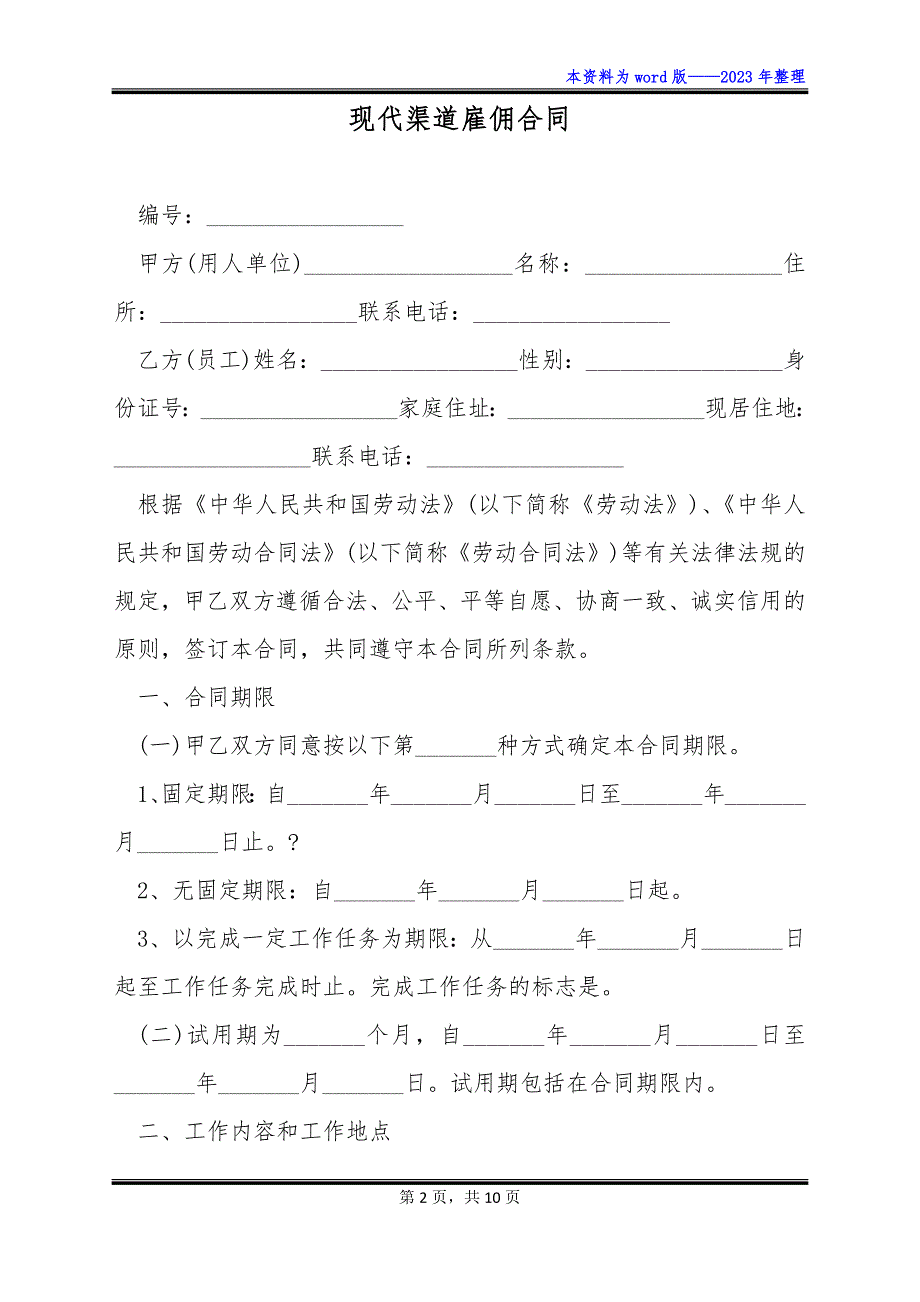 本资料为 word 版——2023 年整理
现代渠道雇佣合同
编号：_________________
甲方(用人单位)__________________名称：_________________住
所：_________________联系电话：_________________
乙方(员工)姓名：_________________性别：_________________身
份证号：_________________家庭住址：_________________现居住地：
_________________联系电话：_________________
根据《中华人民共和国劳动法》(以下简称《劳动法》)、《中华人
民共和国劳动合同法》(以下简称《劳动合同法》)等有关法律法规的
规定，甲乙双方遵循合法、公平、平等自愿、协商一致、诚实信用的
原则，签订本合同，共同遵守本合同所列条款。
一、合同期限
(一)甲乙双方同意按以下第_______种方式确定本合同期限。
1、固定期限：自_______年_______月_______日至_______年_______
月_______日止。?
2、无固定期限：自_______年_______月_______日起。
3、以完成一定工作任务为期限：从_______年_______月_______日
起至工作任务完成时止。完成工作任务的标志是。
(二)试用期为_______个月，自_______年_______月_______日至
_______年_______月_______日。试用期包括在合同期限内。
二、工作内容和工作地点
第 2 页，共 10 页